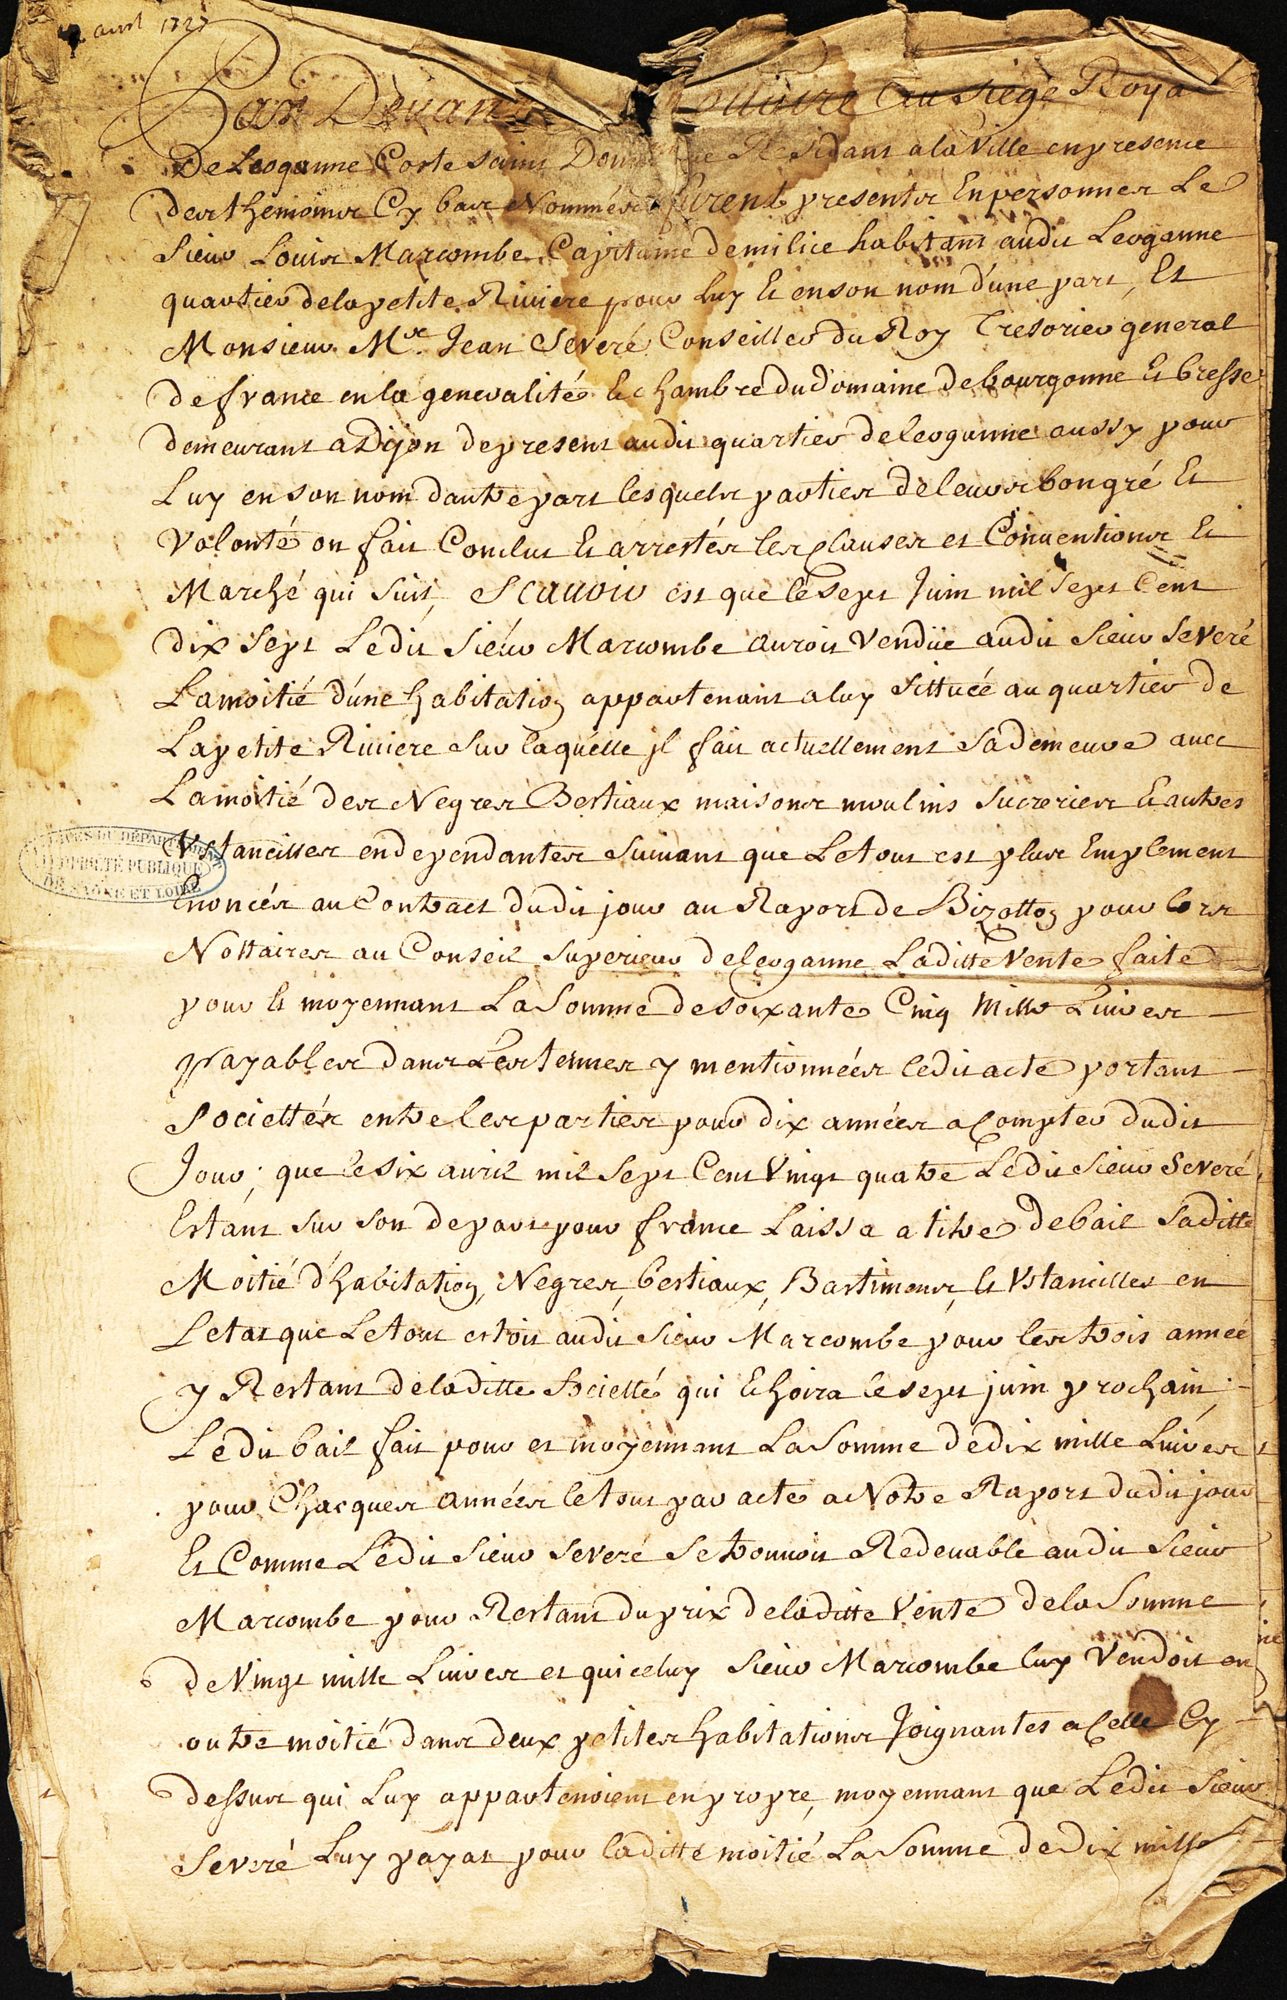 avril 1727
Par Devant Nottaire Au Siege Royal
De Leogane Coste Saint Domingue Residant a la Ville en presence
des themoins Cy bas Nommés furent presents En personnes Le
Sieur Louis Marcombe Capitaine de milice habitant audit Leoganne
quartier de la petite Riviere pour luy Et en son nom d'une part, Et
Monsieur Mre. Jean Severé Conseiller du Roy Tresorier general
de france en la generalité Et chambre du domaine de bourgonne Et bresse
demeurant a Dijon de present audit quartier de leoganne aussy pour
Luy en son nom dautre part lesquels parties de leurs bon gré Et
Volonté on fait Conclut Et arrestés les Clauses et Conventions Et
Marché qui Suit, Scavoir est que le Sept Juin mil Sept Cent
dix Sept Ledit Siéur Marcombe auroit Vendüe audit Sieur Severé
La moitié d'une habitation appartenant a luy Sittuée au quartier de
La petite Riviere Sur laquelle jl fait actuellement Sa demeure avec
La moitié des Negres Bestiaux maisons moulins Sucreries Et autres
Vstancilles endependantes Suivant que Le tout est plus Emplement
Enoncés au Contract dudit jour au Raport de Bizotton pour lors
Nottaires au Conseil Superieur de leoganne Laditte Vente faite
pour Et moyennant La Somme de soixante Cinq Mille Livres
payables dans Les termes y mentionnées ledit acte portant
Societtés entre les parties pour dix années a Compter dudit
Jour; que le Six avril mil Sept Cent Vingt quatre Ledit Sieur Severé
Estant sur son depart pour france Laissa a titre de bail Saditte
Moitié d'habitation, Negres, bestiaux, Bastiments, Et Vstancilles en
Letat que Le tout estoit audit Sieur Marcombe pour les trois année
y Restant de laditte Societté qui Echoira le sept juin prochain;
Ledit bail fait pour et moyennant La Somme de dix mille Livres
pour Chacques années le tout par acte a Notre Raport dudit jour
Et Comme Ledit Sieur Severé Se trouvoit Redevable audit Sieur
Marcombe pour Restant du prix de laditte Vente de la Somme
de Vingt mille Livres et qu'iceluy Sieur Marcombe luy Vendoit en
outre moitié dans deux petites habitations Joignantes a Celle Cy
dessus qui Luy appartenoient en propre, moyennant que Ledit Sieur
Severé Luy payat pour laditte moitié La Somme de Dix mille
ARCHIVES DU DÉPARTEMENT
PROPRIÉTÉ PUBLIQUE
DE SAÔNE ET LOIRE